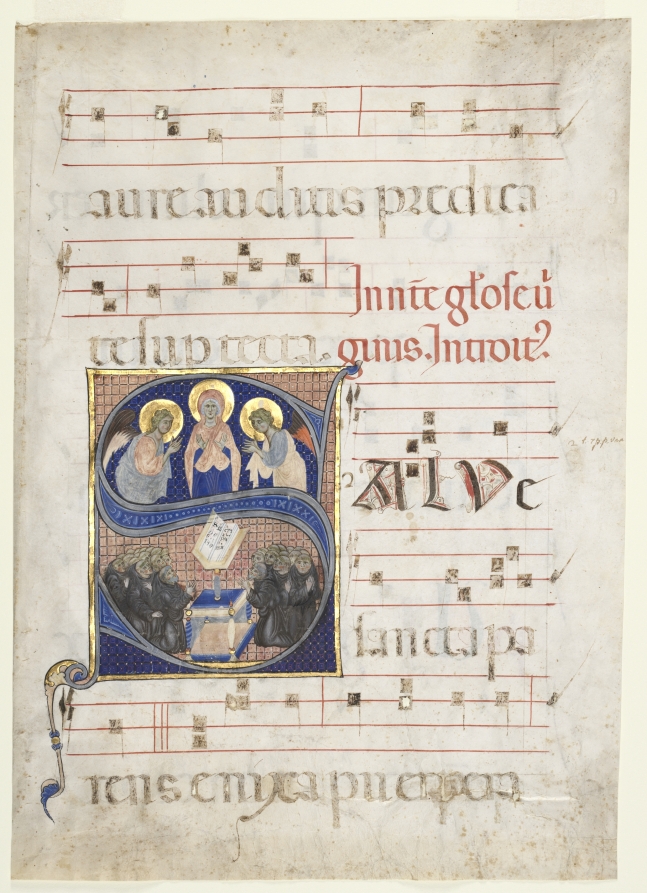 aure auditis predica
te sup tecta.
In nt̄e głose ū
ginis. Introit⁹.
SALVe
sancta pa
rens enixa puerpera